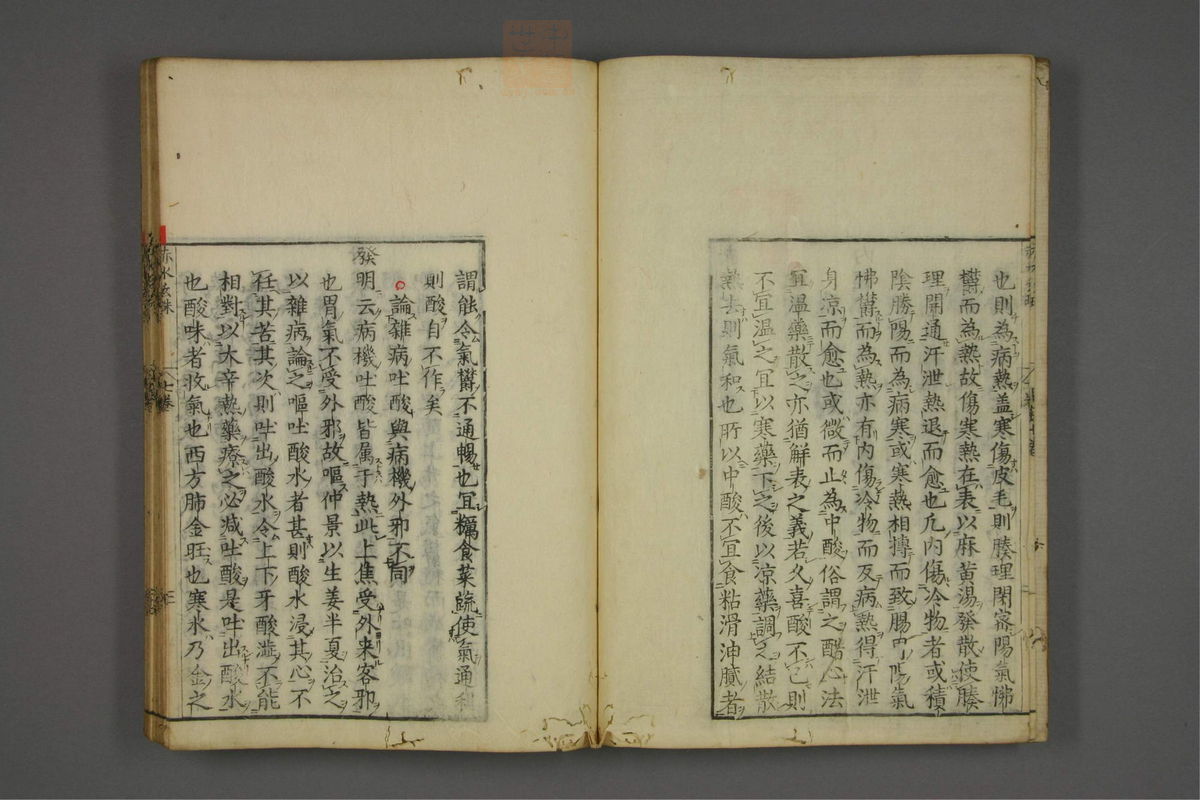 也則為病熱盖寒傷皮毛則腠理閉密陽氣怫
欝而為熱故傷寒熱在表以麻黄湯發散使腠
理開通汗泄熱退而愈也凡内傷冷物者或積
陰勝陽而為病寒或寒熱相搏而致腸陽氣
怫欝而為熱亦有内傷冷物而反病熱得汗泄
身凉而愈也或微而止為中酸俗謂之醋心法
冝温藥散之亦猶解表之義若久喜酸不已則
不冝温之冝以寒藥下之後以凉藥調之結散
熱去則氣和也所以中酸不冝食粘滑油膩者
謂能令氣欝不通暢也冝糲食菜蔬使氣通和
則酸自不作矣
論雜病吐酸與病機外邪不同
發明云病機吐酸皆属于熱此上焦受外来客邪
也胃氣不受外邪故嘔仲景以生姜半夏治之
以雜病論之嘔吐酸水者甚則酸水浸其心不
任其苦其次則吐出酸水令上下牙酸澁不能
相對以大辛熱藥療之必减吐酸是吐出酸水
也酸味者收氣也西方肺金旺也寒水乃金之
赤水玄珠
七卷